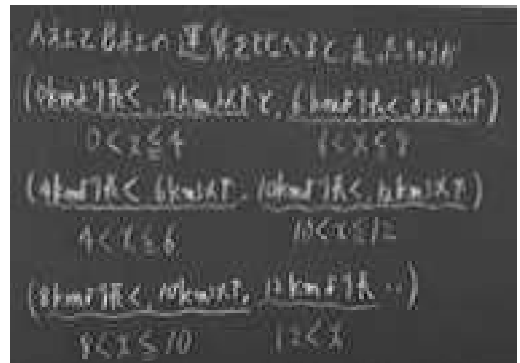 A社とB社の運賃を比べると
(0kmより長く、4km以下と、6kmより長く8km以下)
0<x≦4 6<x≦8
(4kmより長く 6km以下、10kmより長く、12km以下)
4<x≦6 10<x≦12
(8kmより長く、10km以下、12kmより長
8<x≦10 12<x